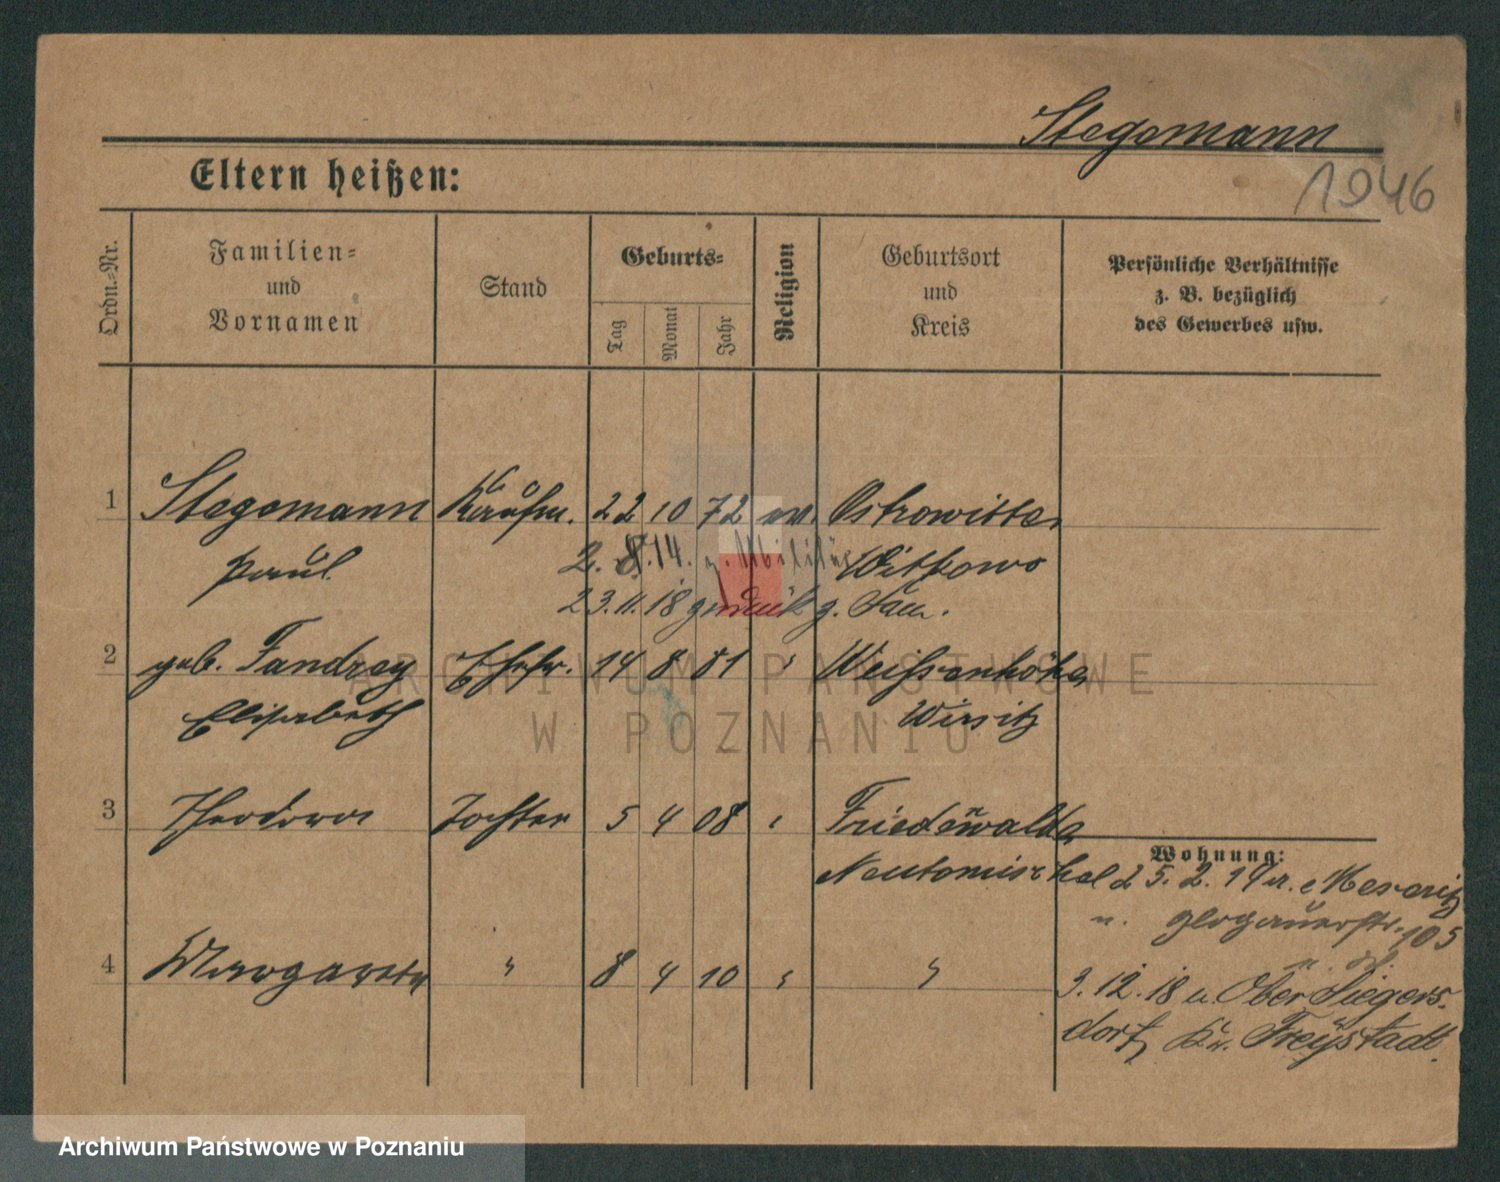 Stegemann
Eltern heißen:
1946
Ordn.=Nr.
Familien=
und
Vornamen
Stand
Geburts=
Tag
Monat
Jahr
Religion
Geburtsort
und
Kreis
Persönliche Verhältnisse
z. B. bezüglich
des Gewerbes usw.
1 Stegemann Kaufm. 22 10 72 ev. Ostrowitte
Paul 2. 8. 14. z. Militär Witkowo
23. 11. 18 zurück z. Fam.
2 geb. Fandrey Ehefr. 14 8 81 " Weissenhöhe
Elisabeth Wirsitz
3 Theodora Tochter 5 4 08 " Friedenwalde
Neutomischel
Wohnung:
5. 2. 19 Meseritz
Glogauerstr. 105
4 Margarete " 8 4 10 " "
3. 12. 18 n. Ober Siegers-
dorf, Kr. Freystadt.
ARCHIWUM PAŃSTWOWE
W POZNANIU
Archiwum Państwowe w Poznaniu